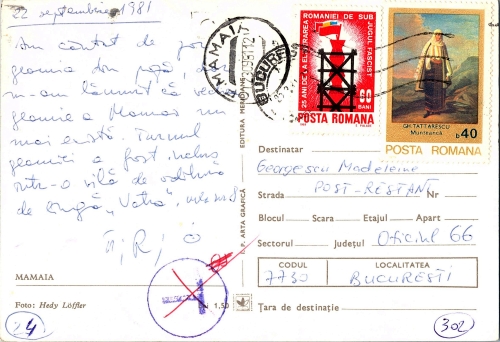 22 septembrie 1981
Am căutat de pomană
geamia din piață
m-am lămurit că
geamie a Mamaia nu
mai există. Turnul
geamiei a fost inclus
într-o vilă de odihnă
de lângă "Vatra",
MAMAIA
Foto: Hedy Löffler
24
EDITURA MERIDIANE
I. P. ARTA GRAFICĂ
LEI 1,50
MAMAIA
BUCUREȘTI
25 ANI DE LA ELIBERAREA ROMANIEI DE SUB JUGUL FASCIST
60 BANI
POSTA ROMANA
GH. TATTARESCU
Munteanca
b40
POSTA ROMANA
Destinatar Georgescu Madeleine
Strada POST-RESTANT Nr.
Blocul Scara Etajul Apart
Sectorul Județul Oficiul 66
CODUL LOCALITATEA
7730 BUCUREȘTI
Țara de destinație
302